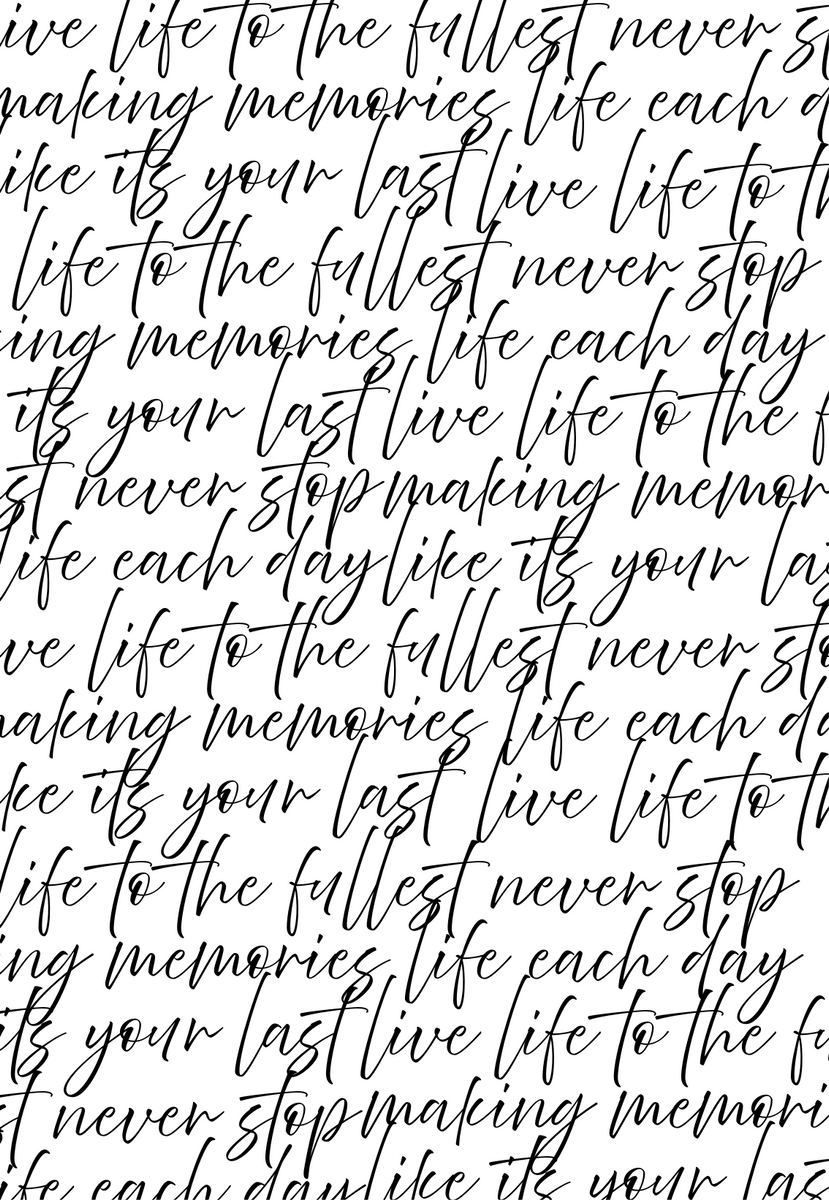 ive life to the fullest never s
making memories life each d
ike it's your last live life to th
life to the fullest never stop
ing memories life each day
it's your last live life to the f
st never stop making memor
life each day like it's your las
ve life to the fullest never sto
aking memories life each da
ke it's your last live life to th
life to the fullest never stop
ing memories life each day
it's your last live life to the fu
st never stop making memori
ife each day like it's your las